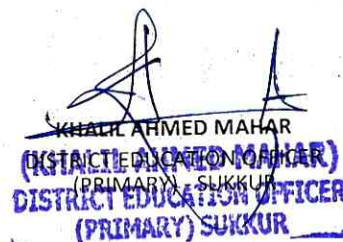 KHALIL AHMED MAHAR
DISTRICT EDUCATION OFFICER
(PRIMARY) SUKKUR
(KHALIL AHMED MAHAR)
DISTRICT EDUCATION OFFICER
(PRIMARY) SUKKUR